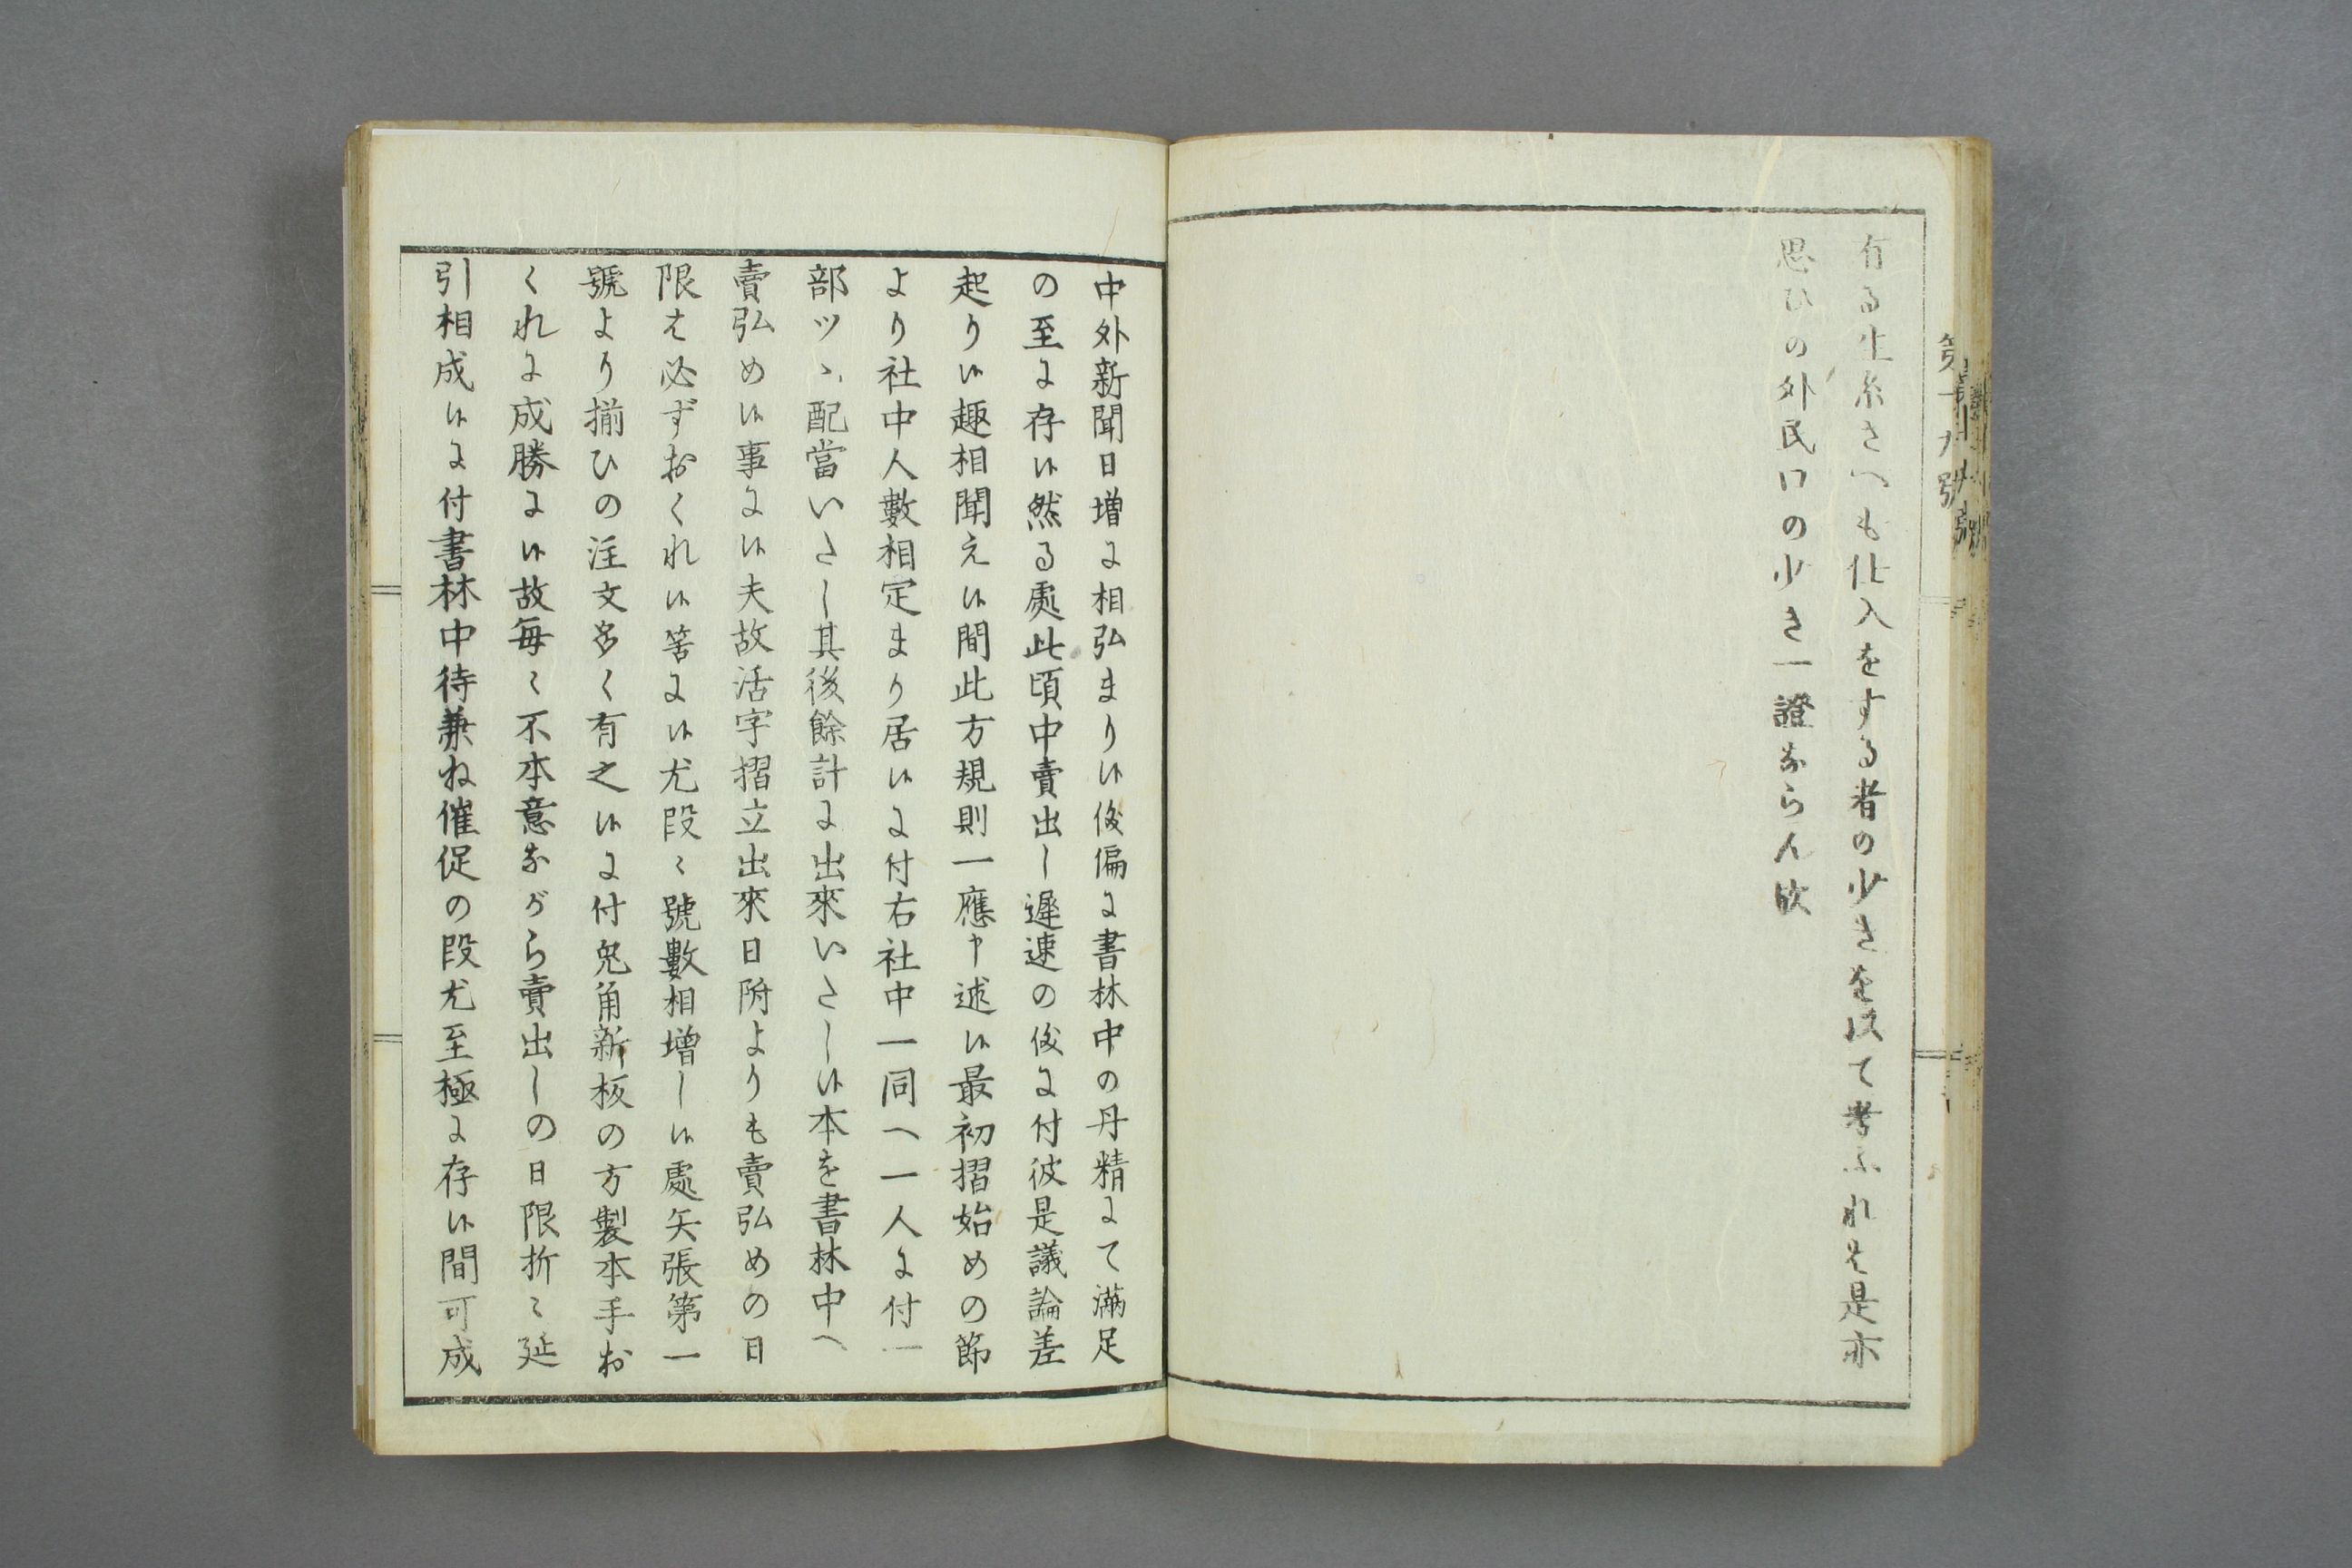 有る生糸さへも仕入をする者の少きを以て考ふれは是亦
思ひの外民口の少き一證ならん歟
中外新聞日増に相弘まり候儀偏に書林中の丹精にて滿足
の至に存候然る處此頃中賣出し遲速の儀に付彼是議論差
起り候趣相聞え候間此方規則一應申述候最初摺始めの節
より社中人數相定まり居候に付右社中一同へ一人に付一
部ツヽ配當いたし其後餘計に出來いたし候本を書林中へ
賣弘め候事に候夫故活字摺立出來日附よりも賣弘めの日
限は必ずおくれ候筈に候尤段々號數相増し候處矢張第一
號より揃ひの注文多く有之候に付兎角新板の方製本手お
くれに成勝に候故毎々不本意ながら賣出しの日限折々延
引相成候に付書林中待兼ね催促の段尤至極に存候間可成